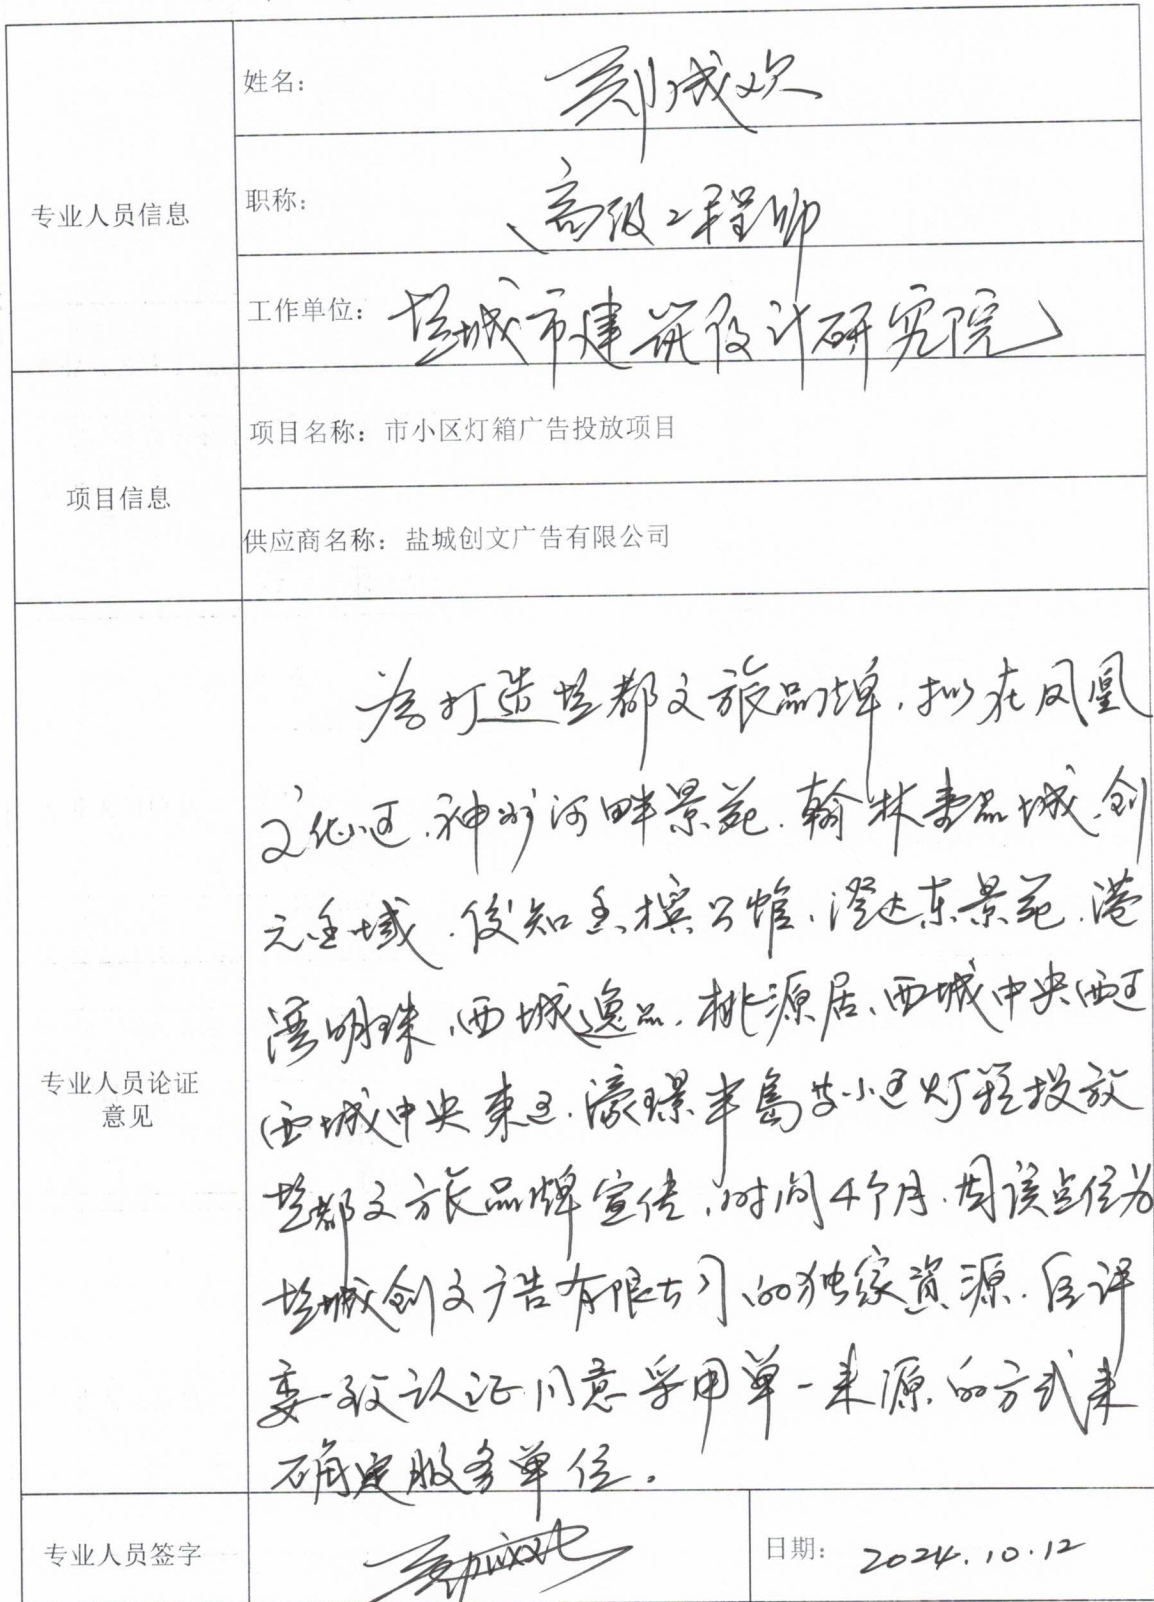 姓名：
职称： 高级工程师
专业人员信息
工作单位： 盐城市建筑设计研究院
项目名称：市小区灯箱广告投放项目
项目信息
供应商名称：盐城创文广告有限公司
为打造盐都文旅品牌，拟在凤凰
文化区、神州河畔景苑、翰林壹品城、创
元金域、俊知香槟公馆、澄达东景苑、港
湾明珠、西城逸品、桃源居、西城中央西区
西城中央东区、濠璟半岛等小区灯箱投放
专业人员论证
意见
盐都文旅品牌宣传，时间4个月，因该点位为
盐城创文广告有限公司的独家资源，经评
委一致认证同意采用单一来源的方式来
确定服务单位。
专业人员签字
日期： 2024.10.12